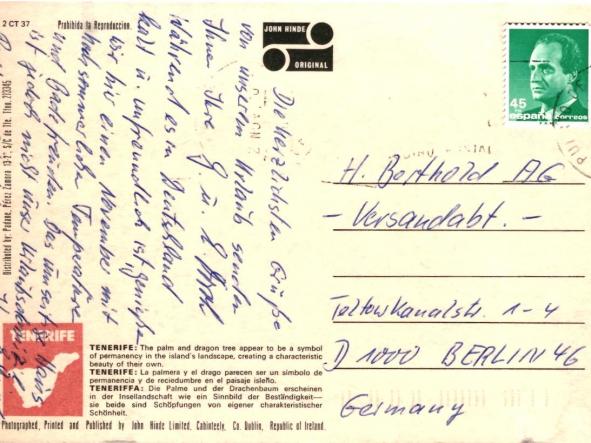 2 CT 37
Prohibida la Reproduccion.
JOHN HINDE
ORIGINAL
45
españa correos
Die herzlichsten Grüße
von unserem Urlaub senden
Ihnen Ihre
Während es in Deutschland
kalt u. unfreundlich ist, genießen
wir hier einen November mit
hochsommerlichen Temperaturen
und Badefreuden. Das
ist jedoch nicht
H. Berthold AG
- Versandabt. -
Teltowkanalstr. 1-4
D 1000 BERLIN 46
Germany
TENERIFE
TENERIFE: The palm and dragon tree appear to be a symbol
of permanency in the island's landscape, creating a characteristic
beauty of their own.
TENERIFE: La palmera y el drago parecen ser un símbolo de
permanencia y de reciedumbre en el paisaje isleño.
TENERIFFA: Die Palme und der Drachenbaum erscheinen
in der Insellandschaft wie ein Sinnbild der Beständigkeit—
sie beide sind Schöpfungen von eigener charakteristischer
Schönheit.
Photographed, Printed and Published by John Hinde Limited, Cabinteely, Co. Dublin, Republic of Ireland.
Distributed by: